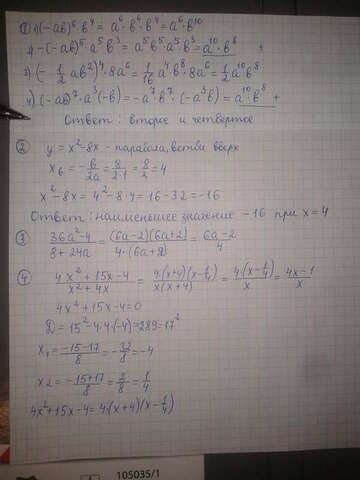 ① 1) (-ab)⁶·b⁴ = a⁶·b⁶·b⁴ = a⁶·b¹⁰
2) -(-ab)⁵·a⁵b³ = a⁵b⁵a⁵b³ = a¹⁰·b⁸ +
3) (-1/2 ab²)⁴·8a⁶ = 1/16 a⁴b⁸·8a⁶ = 1/2 a¹⁰b⁸
4) (-ab)⁷·a³(-b) = -a⁷b⁷·(-a³b) = a¹⁰b⁸ +
Ответ: второе и четвёртое
② y = x²-8x - парабола, ветви вверх
x₆ = -b/2a = 8/2·1 = 8/2 = 4
x²-8x = 4²-8·4 = 16-32 = -16
Ответ: наименьшее значение -16 при x = 4
③ 36a²-4/8+24a = (6a-2)(6a+2)/4·(6a+2) = 6a-2/4
④ 4x²+15x-4/x²+4x = 4·(x+4)(x-1/4)/x(x+4) = 4·(x-1/4)/x = 4x-1/x
4x²+15x-4=0
D = 15²-4·4·(-4)=289=17²
x₁ = -15-17/8 = -32/8 = -4
x₂ = -15+17/8 = 2/8 = 1/4
4x²+15x-4=4·(x+4)(x-1/4)
105035/1